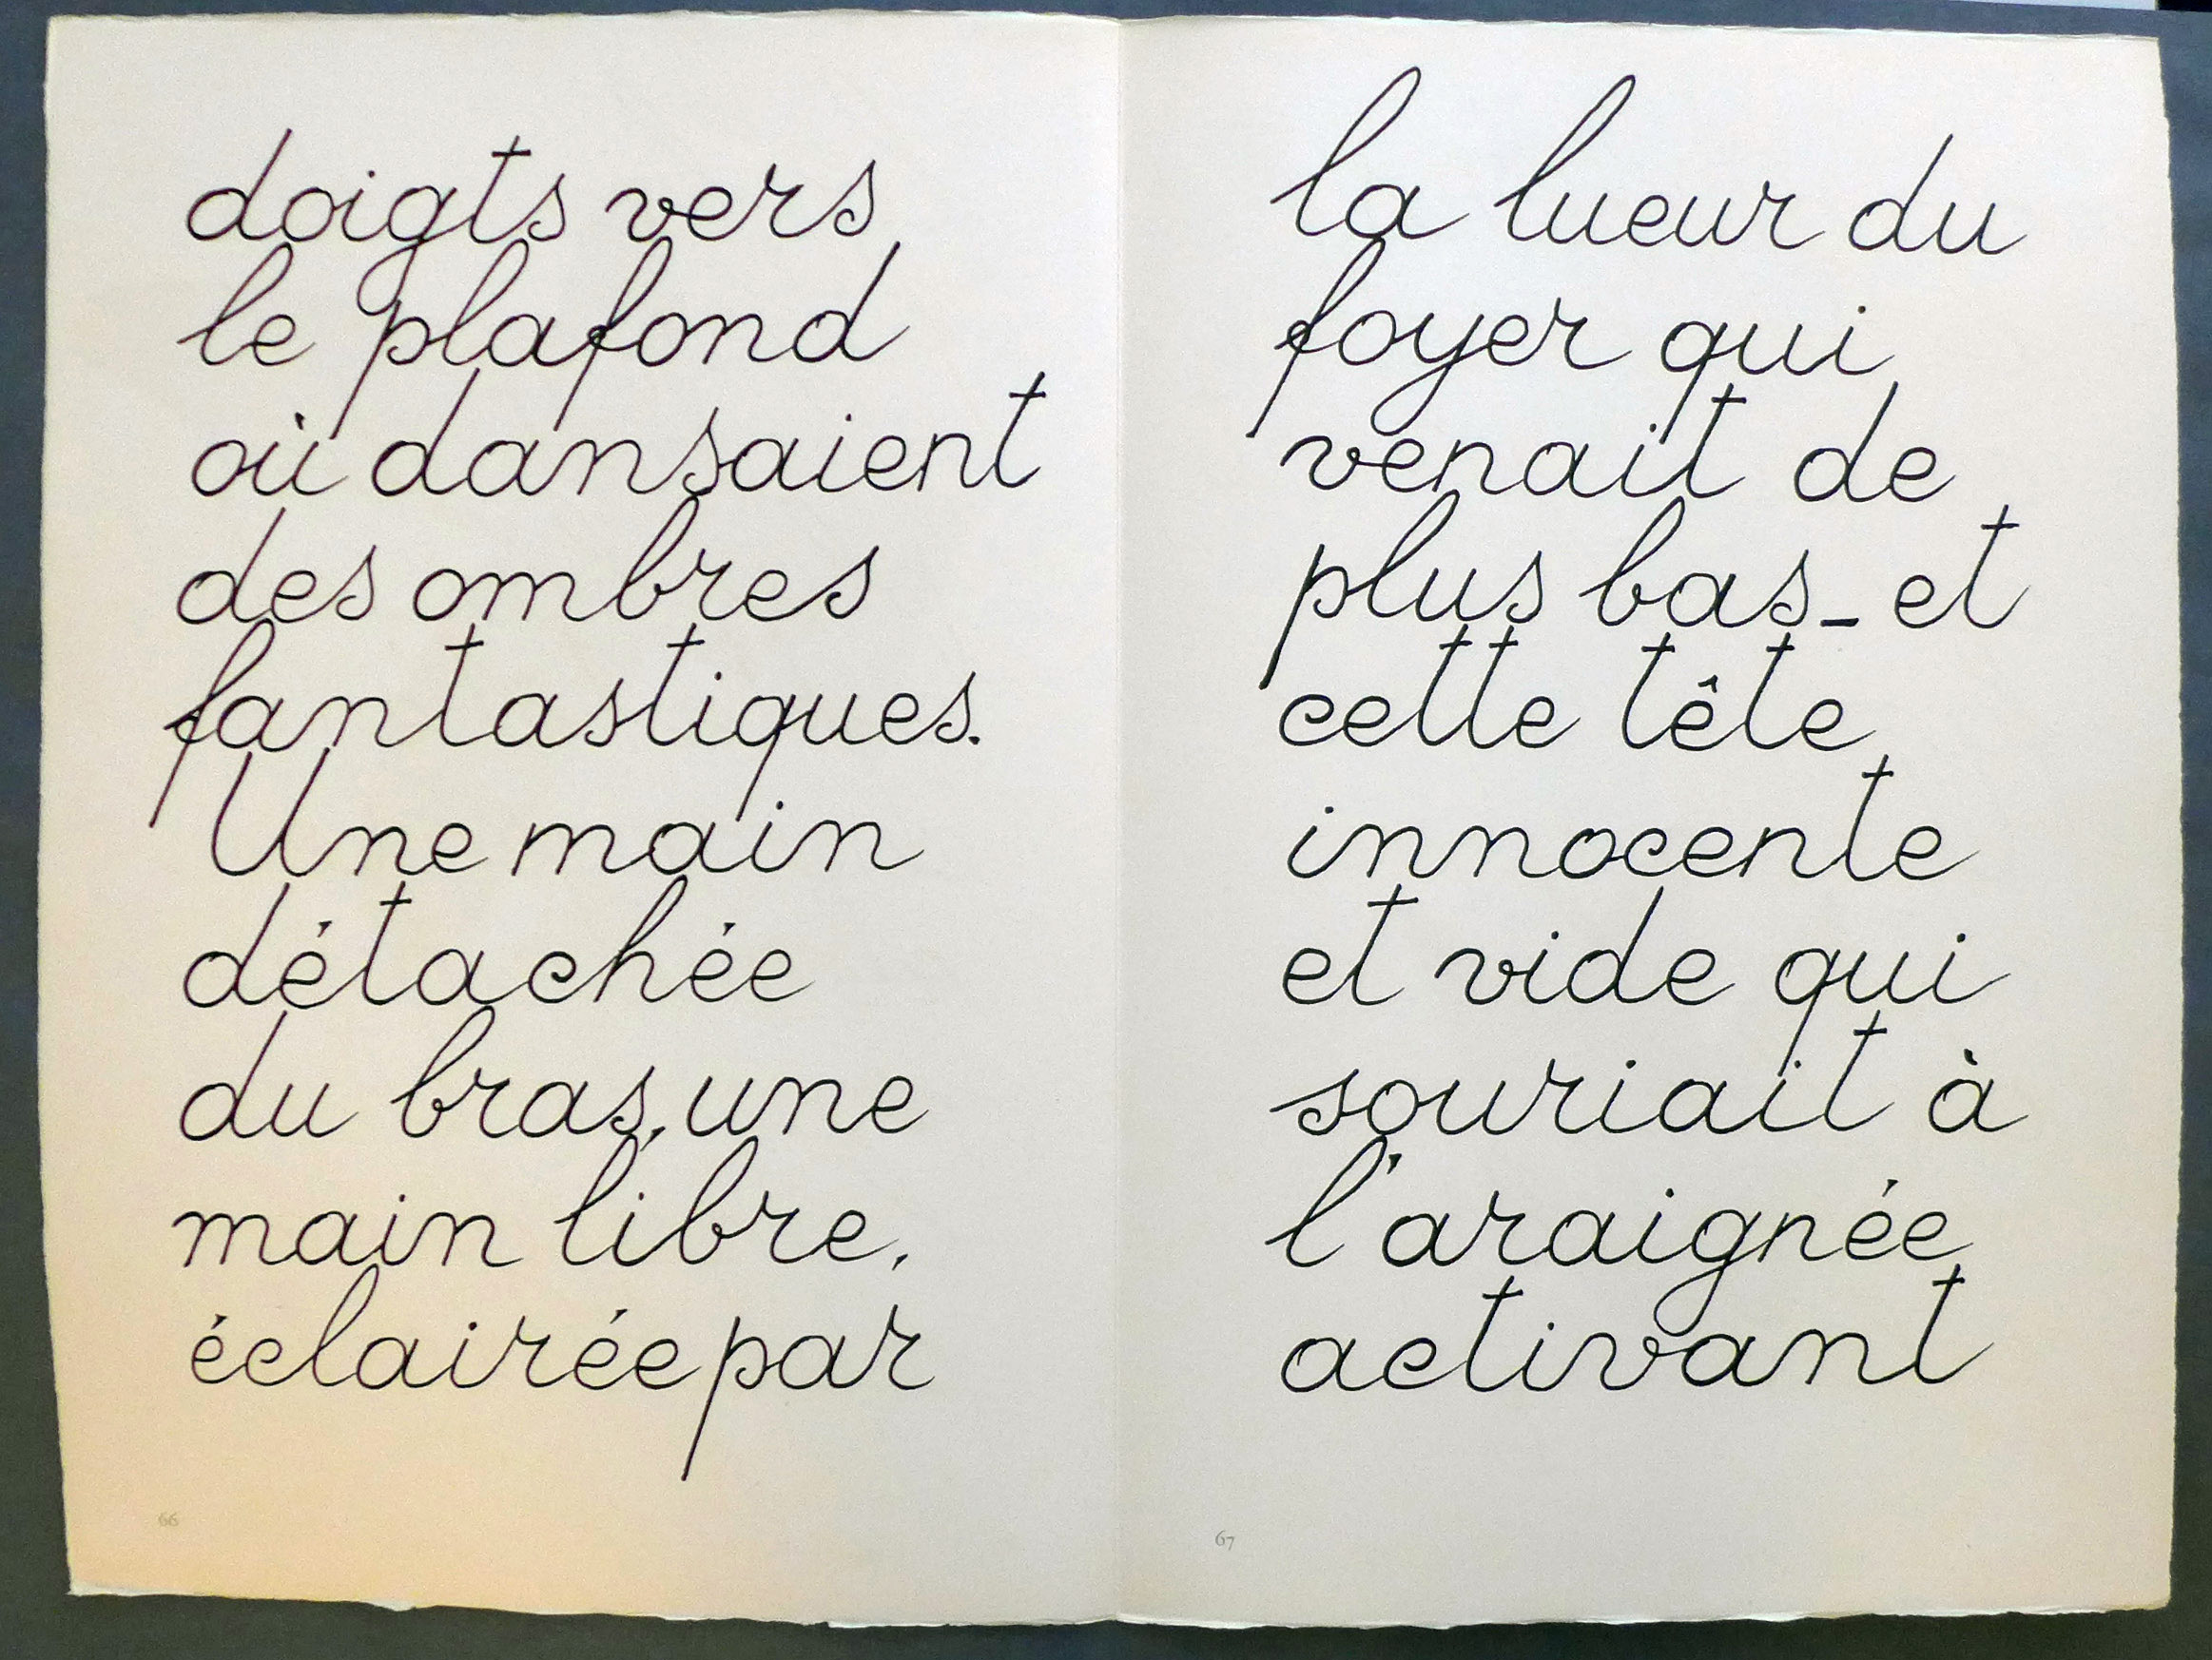 doigts vers
le plafond
où dansaient
des ombres
fantastiques.
Une main
détachée
du bras, une
main libre,
éclairée par
66
la lueur du
foyer qui
venait de
plus bas_ et
cette tête
innocente
et vide qui
souriait à
l'araignée
activant
67